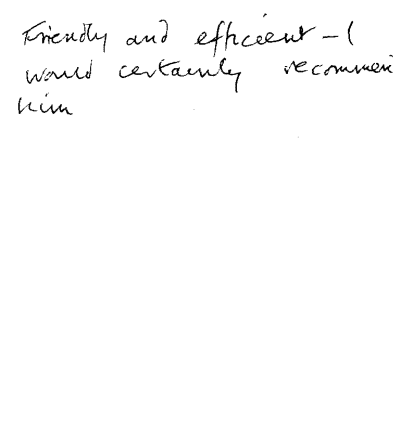 Friendly and efficient – I
would certainly recommen
him